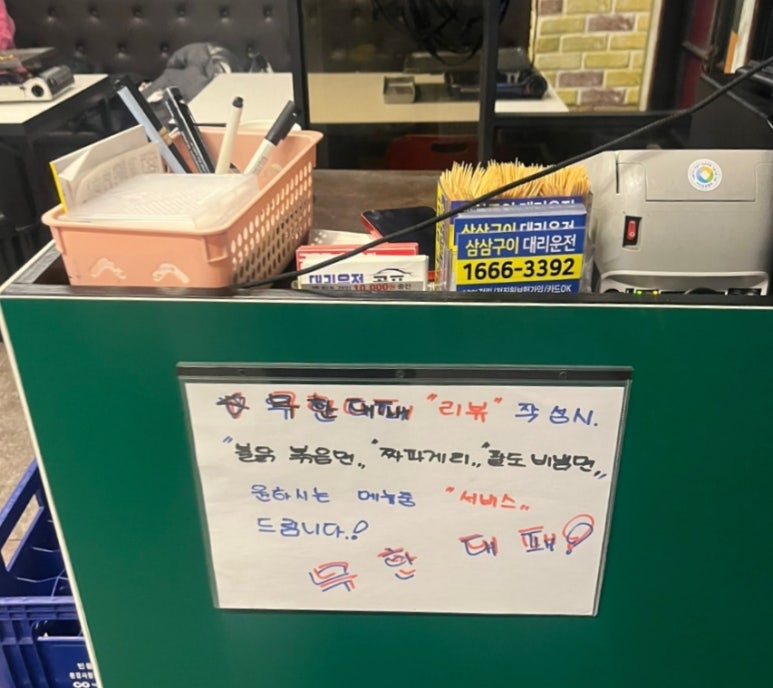 삼삼구이 대리운전
삼삼구이 대리운전
1666-3392
대리운전
10,000원
☆ 무한대패 "리뷰" 작성시.
"불닭 볶음면", "짜파게티", "팔도 비빔면"
원하시는 메뉴중 "서비스"
드립니다.!
무한 대패!